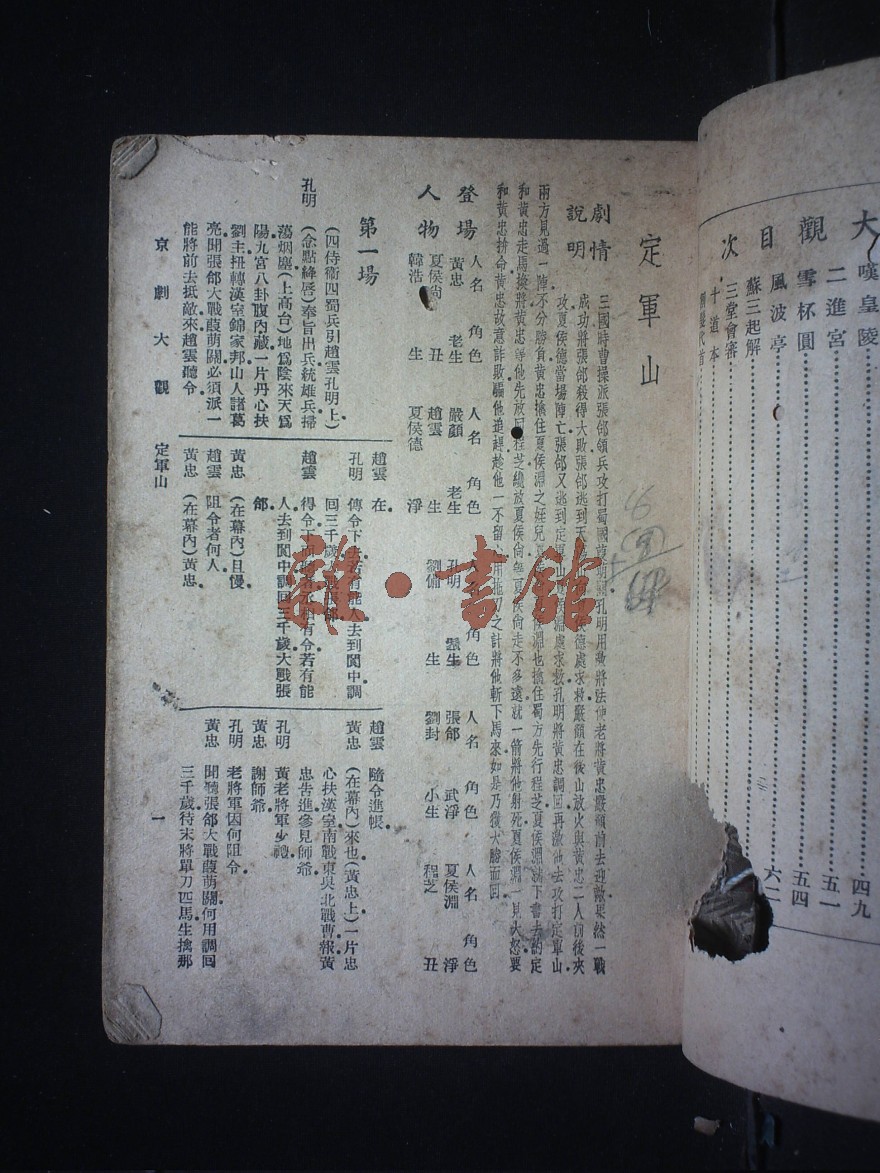 大
觀
目
次
嘆皇陵 四九
二進宮 五一
雪杯圓 五四
風波亭 六二
蘇三起解
三堂會審
十道本
定軍山
劇情說明
三國時曹操派張郃領兵攻打蜀國葭萌關孔明用激將法使老將黃忠嚴顏前去迎敵果然一戰
成功將張郃殺得大敗張郃逃到天德處求救嚴顏在後山放火與黃忠二人前後夾
攻夏侯德當場陣亡張郃又逃到定軍山夏侯淵處求救孔明將黃忠調回再激他去攻打定軍山
兩方見過一陣不分勝負黃忠擒住夏侯淵之姪兒夏侯淵也擒住蜀方先行程芝夏侯淵就下書去約定
和黃忠走馬換將黃忠等他先放回程芝纔放夏侯尙等夏侯尙走不多遠就一箭將他射死夏侯淵一見大怒要
和黃忠拚命黃忠故意詐敗騙他追趕趁他一不留用拖刀之計將他斬下馬來如是乃獲大勝而回
登場人物
人名 角色 人名 角色 人名 角色 人名 角色 人名 角色
黃忠 老生 嚴顏 老生 孔明 鬚生 張郃 武淨 夏侯淵 淨
夏侯尙 丑 趙雲 生 劉備 生 劉封 小生 程芝 丑
韓浩 生 夏侯德 淨
第一場
(四侍衞四蜀兵引趙雲孔明上)
孔明 (念點絳唇)奉旨出兵統雄兵掃
蕩烟塵(上高台)地爲陰來天爲
陽九宮八卦腹內藏一片丹心扶
劉主扭轉漢室錦家邦山人諸葛
亮聞張郃大戰葭萌關必須派一
能將前去抵敵來趙雲聽令
趙雲 在
孔明 傳令下去若有能人去到閬中調
回三千歲張郃
趙雲 得令下面聽者有令若有能
人去到閬中調回三千歲大戰張
郃
黃忠 (在幕內)且慢
趙雲 阻令者何人
黃忠 (在幕內)黃忠
趙雲 隨令進帳
黃忠 (在幕內)來也(黃忠上)一片忠
心扶漢室南戰東與北戰曹報黃
忠告進參見師爺
孔明 黃老將軍少禮
黃忠 謝師爺
孔明 老將軍因何阻令
黃忠 聞聽張郃大戰葭萌關何用調回
三千歲待末將單刀匹馬生擒那
京劇大觀 定軍山 一
雜·書館